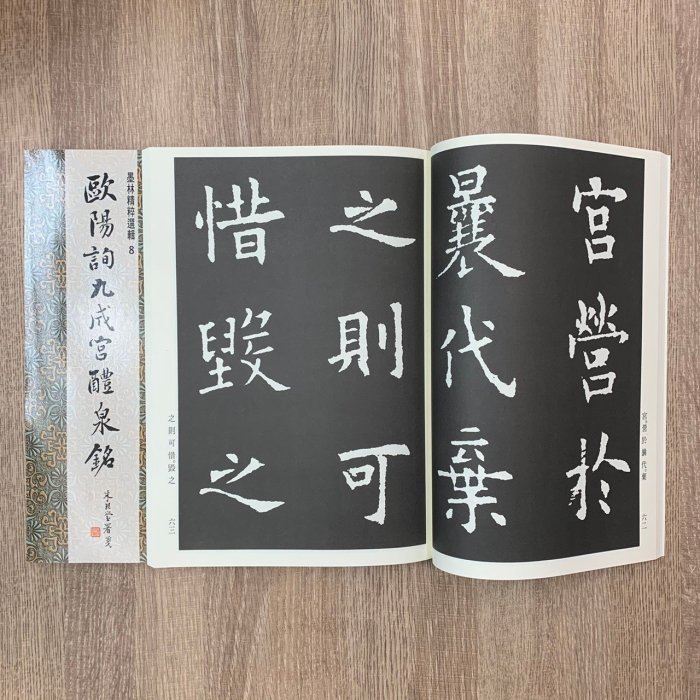 墨林精粹選輯 8
歐陽詢九成宮醴泉銘
宮營於
曩代棄
宮。營於曩代。棄
六二
之則可
惜毀之
之則可惜。毀之
六三